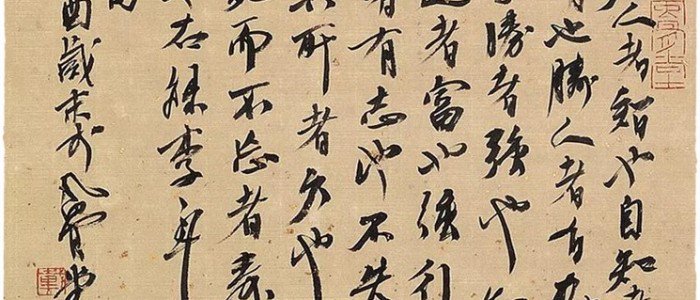 人者智也自知者
也勝人者有
勝者強也
者富也強行
者有志也不失
其所者久也
死而不忘者壽
右錄李耳
酉歲末於風骨堂